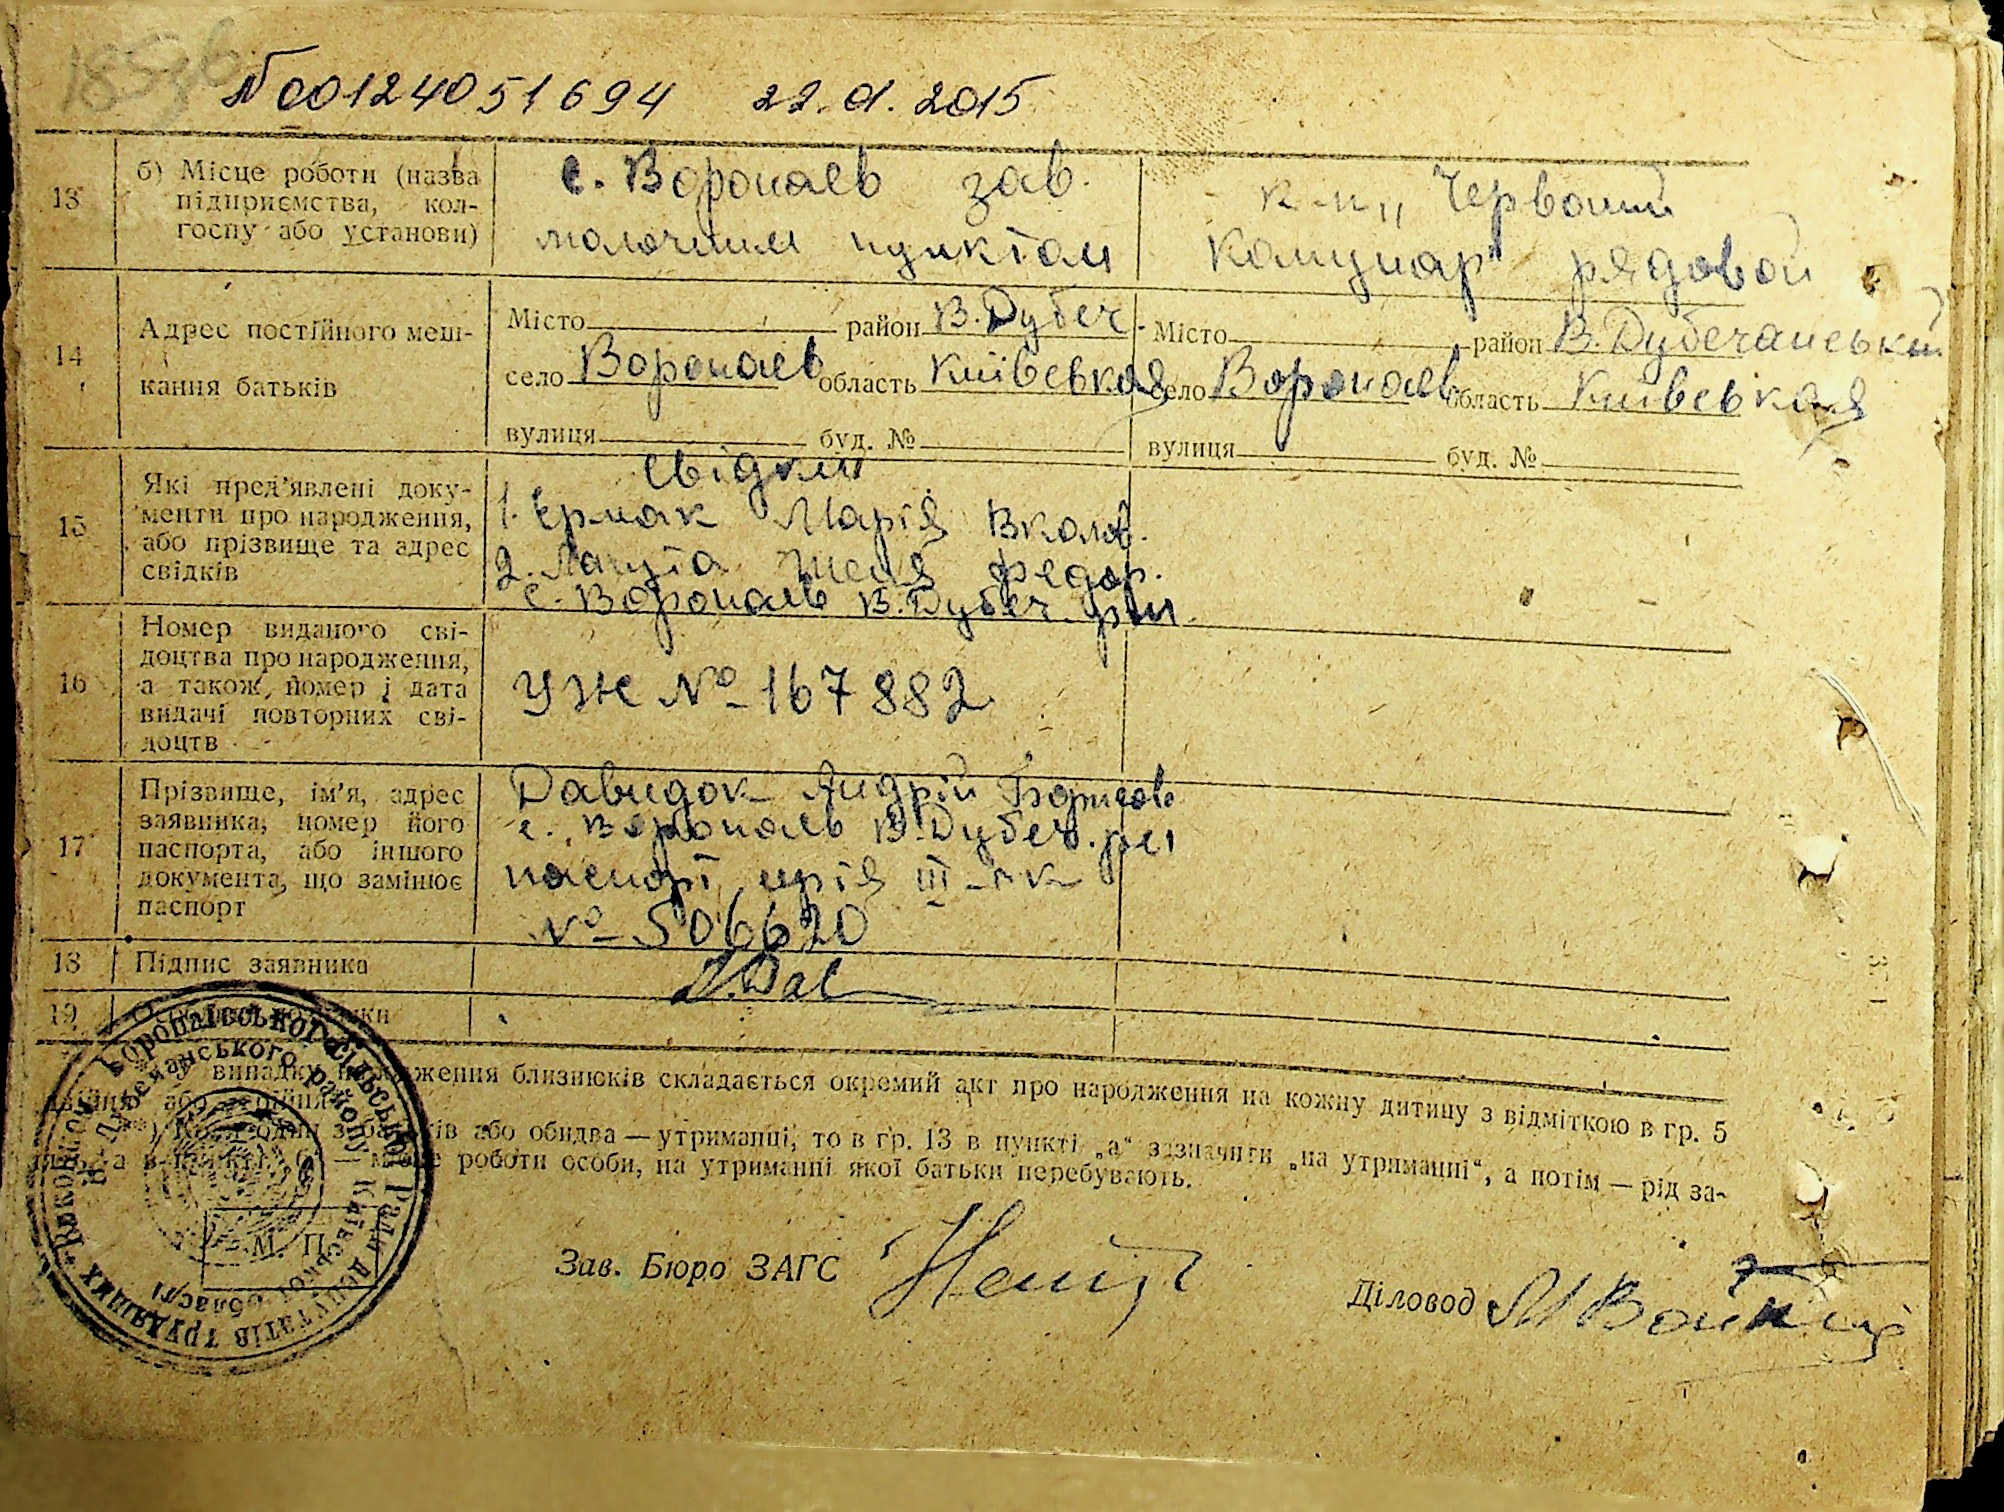 № 00124051694 22.01.2015
13 б) Місце роботи (назва підприємства, колгоспу або установи)
с. Воропаєв зав.
молочним пунктом
к-п „Червоний
Комунар" рядовой
14 Адрес постійного мешкання батьків
Місто район В.Дубеч.
село Воропаєв область Київськая
вулиця буд. №
Місто район В.Дубечанський
село Воропаєв область Київськая
вулиця буд. №
15 Які пред'явлені документи про народження, або прізвище та адрес свідків
Свідки
1. Єрмак Марія
2. Федор.
с. Воропаєв В.Дубеч. р-н
16 Номер виданого свідоцтва про народження, а також номер і дата видачі повторних свідоцтв
УЖ № 167882
17 Прізвище, ім'я, адрес заявника, номер його паспорта, або іншого документа, що замінює паспорт
Давидок Андрій Борисов
с. Воропаєв В.Дубеч. р-н
паспорт
№ 506620
18 Підпис заявника
А.Дав
19
У випадку народження близнюків складається окремий акт про народження на кожну дитину з відміткою в гр. 5
або
один з батьків або обидва — утриманці, то в гр. 13 в пункті „а" зазначити „на утриманні", а потім — рід за-
— місце роботи особи, на утриманні якої батьки перебувають.
М. П.
Зав. Бюро ЗАГС
Діловод
Виконком Воропаївської сільської Ради депутатів трудящих
В. Дубечанського району Київської області